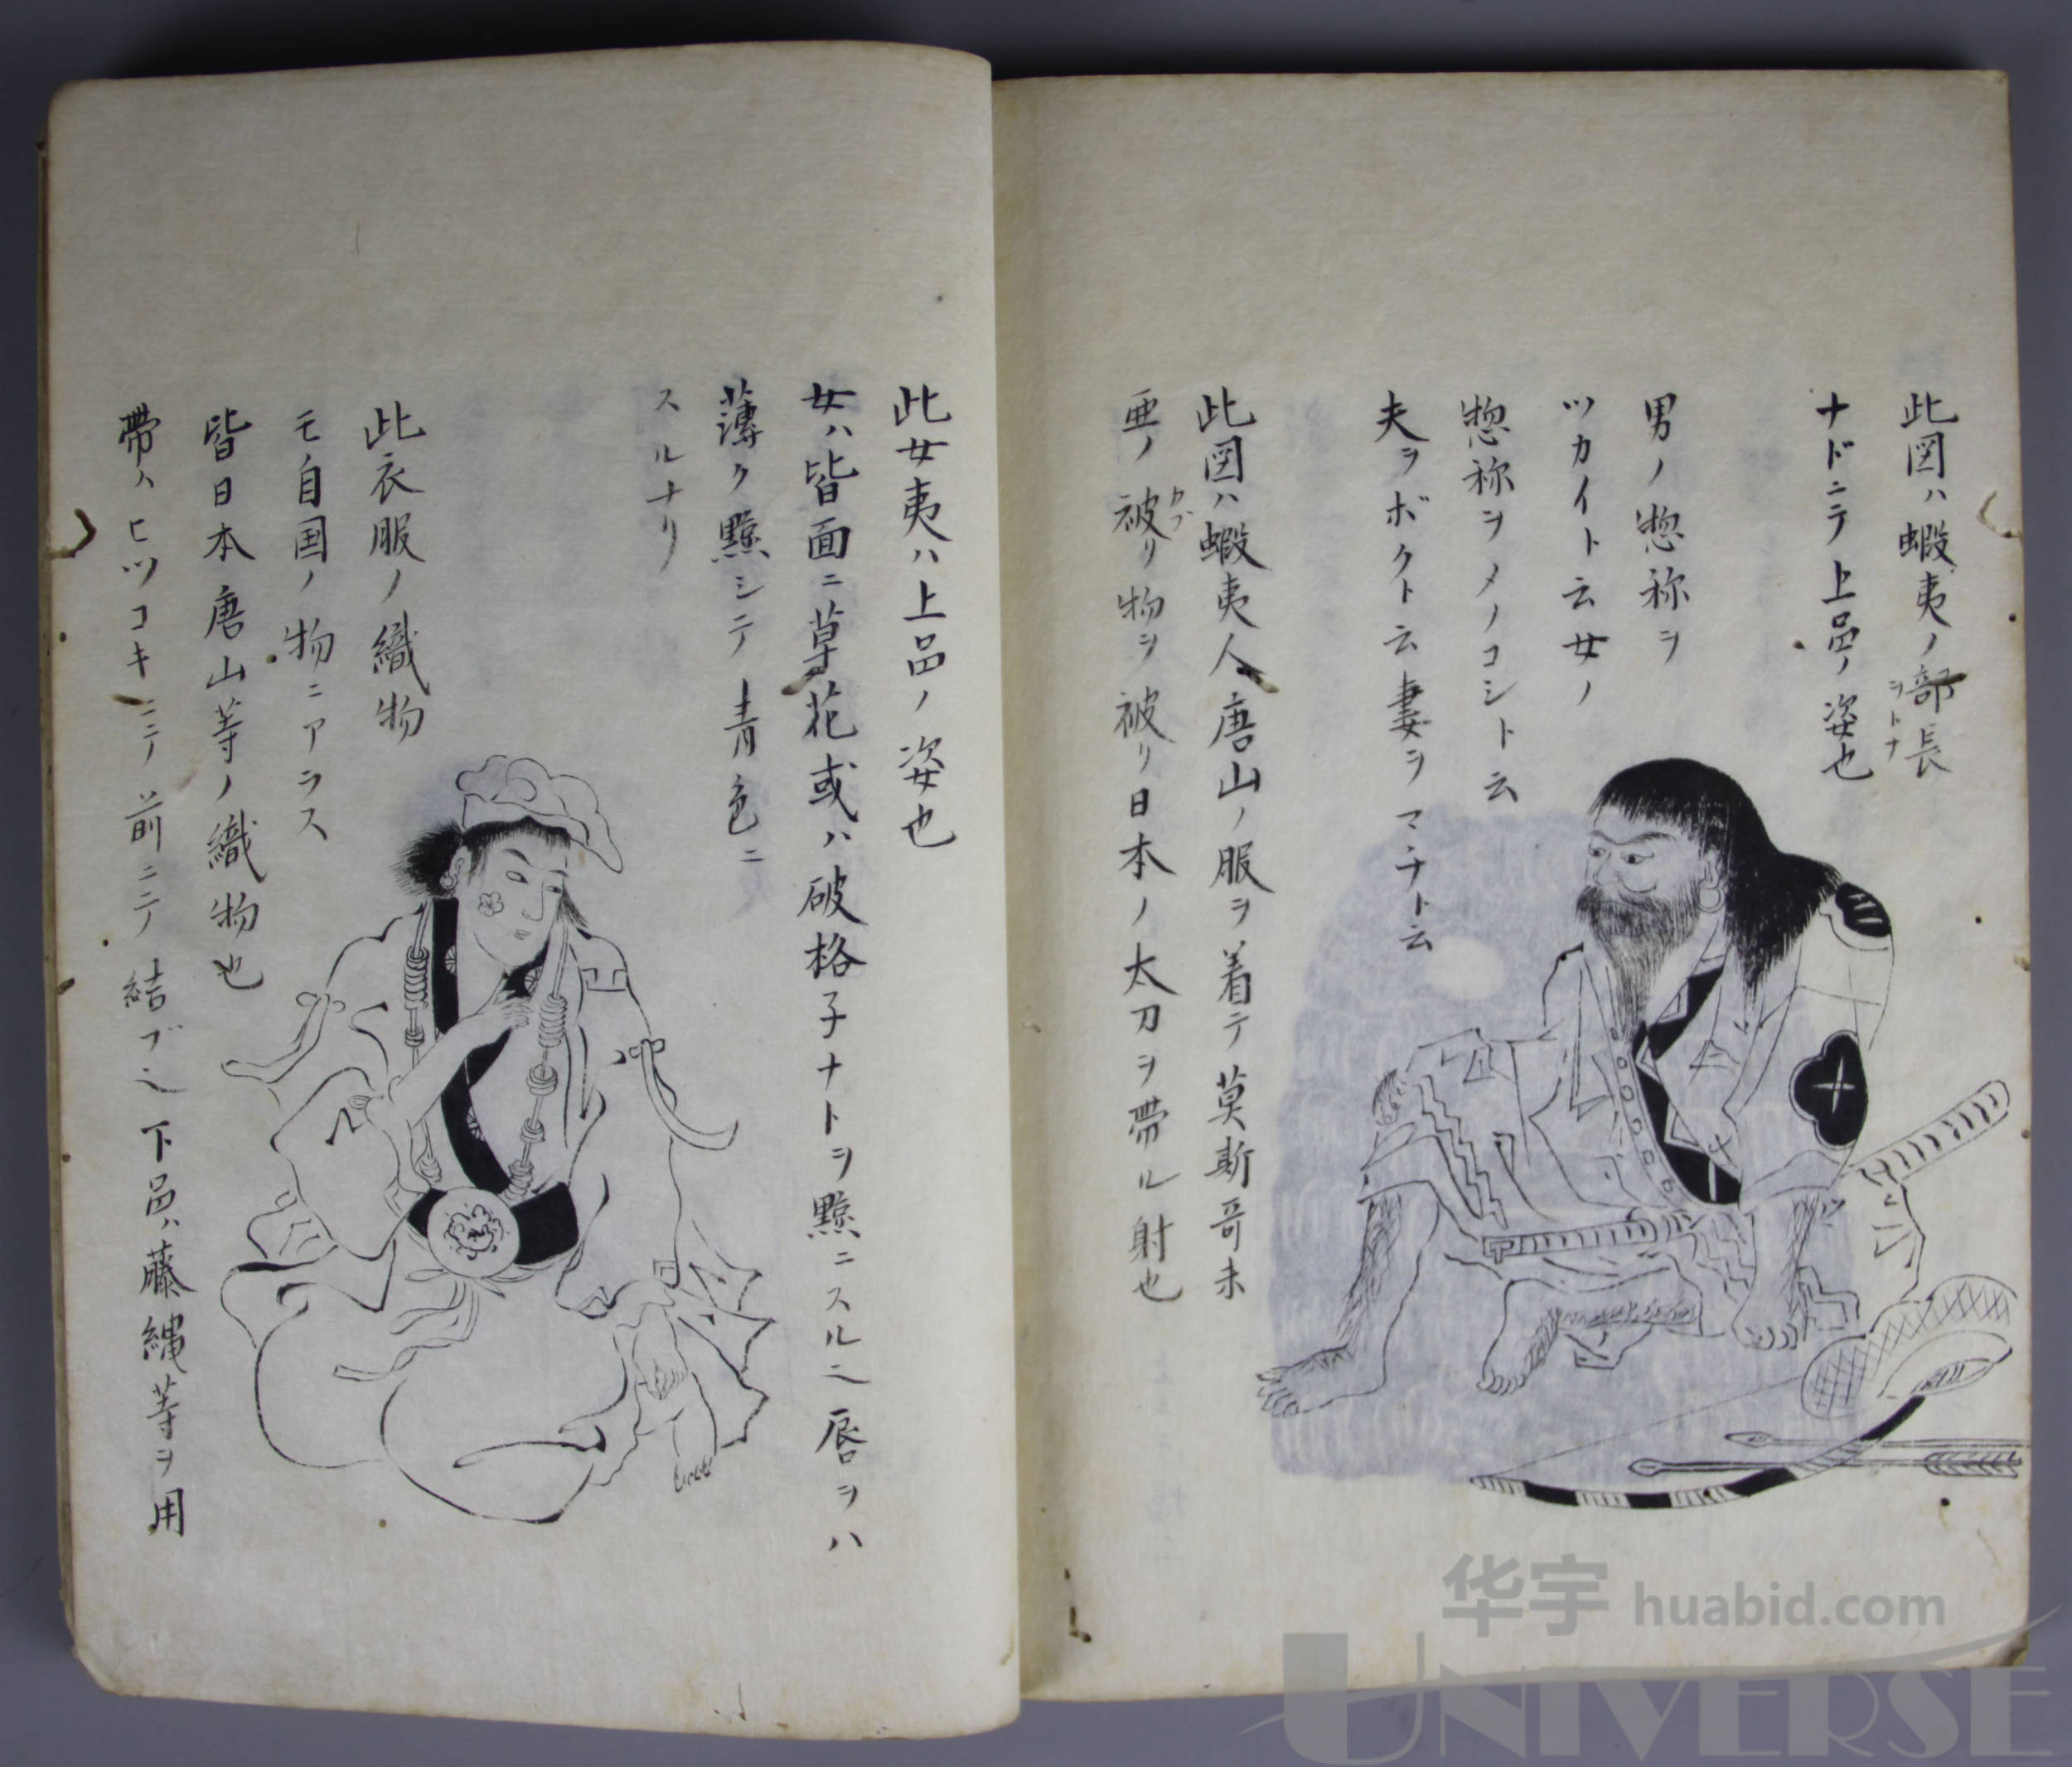 此図ハ蝦夷ノ部長
ヲトナ
ナドニテ上品ノ姿也
男ノ惣称ヲ
ツカイト云女ノ
惣称ヲメノコシト云
夫ヲボクト云妻ヲマチト云
此図ハ蝦夷人唐山ノ服ヲ着テ莫斯哥未
亜ノ被リ物ヲ被リ日本ノ太刀ヲ帯ル射也
カブ
此女夷ハ上品ノ姿也
女ハ皆面ニ草花或ハ破格子ナトヲ黥ニスル也唇ヲハ
薄ク黥シテ青色ニ
スルナリ
此衣服ノ織物
モ自国ノ物ニアラス
皆日本唐山等ノ織物也
帯ハヒツコキニテ前ニテ結ブ也下品ハ藤縄等ヲ用
华宇 huabid.com
UNIVERSE